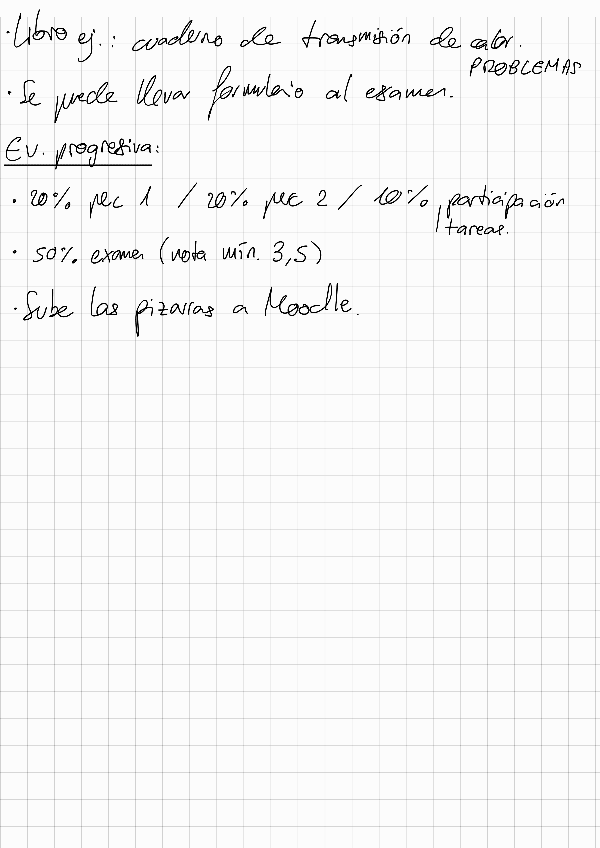 · Libro ej.: cuaderno de transmisión de calor.
PROBLEMAS
· Se puede llevar formulario al examen.
Ev. progresiva:
· 20% pec 1 / 20% pec 2 / 10% participación
/ tareas.
· 50% examen (nota mín. 3,5)
· Sube las pizarras a Moodle.